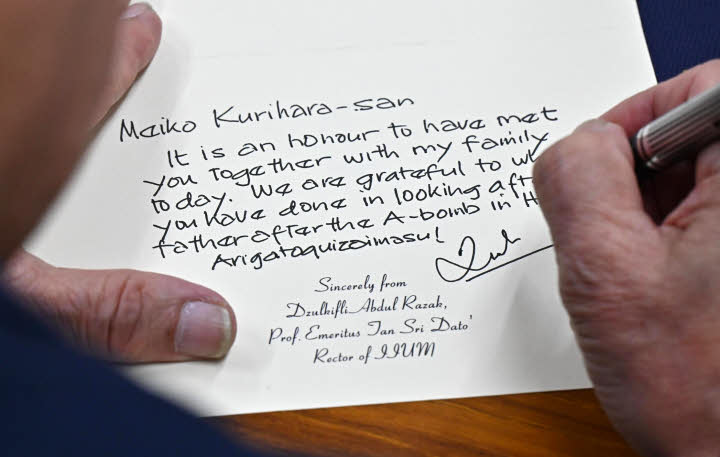 Meiko Kurihara-san
It is an honour to have met
you together with my family
today. We are grateful to
you have done in looking
father after the A-bomb in H
Arigatoguizaimasu!
Sincerely from
Dzulkifli Abdul Razak,
Prof. Emeritus Tan Sri Dato'
Rector of IIUM